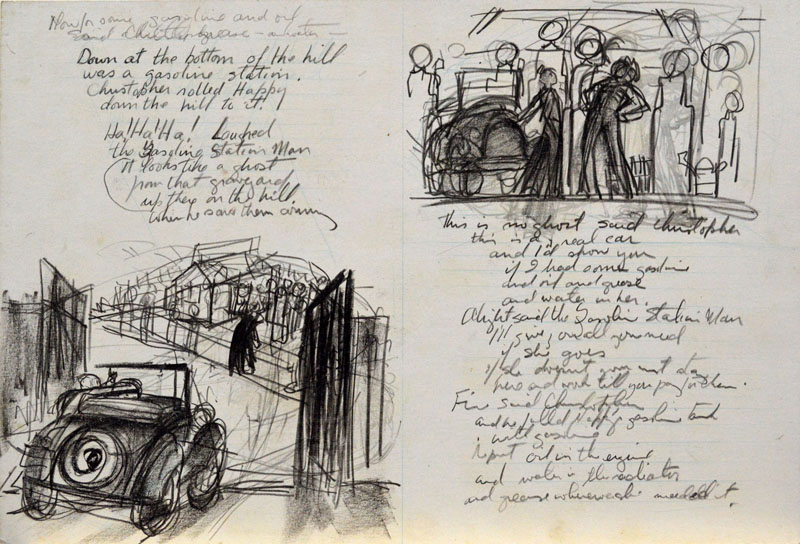 Now for some gasoline and oil
said Christopher grease - water -
Down at the bottom of the hill
was a gasoline station.
Christopher rolled Happy
down the hill to it.
Ha! Ha! Ha! Laughed
the Gasoline Station Man
It looks like a ghost
from that graveyard
up there on the hill,
when he saw them coming
This is no ghost said Christopher
this is a real car
and I'd show you
if I had some gasoline
and oil and grease
and water in her.
Alright said the Gasoline Station Man
I'll give you all you need
if she goes
if she doesn't you must stay
here and work till you pay for them.
Fine said Christopher
and he filled Happy's gasoline tank
with gasoline
put oil in the engine
and water in the radiator
and grease where she needed it.